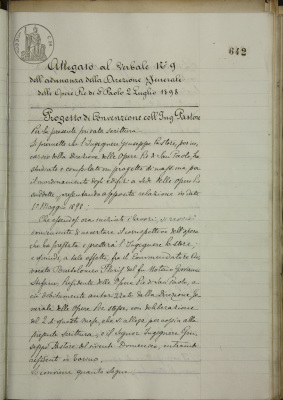 642
Allegato al Verbale N° 9
dell'adunanza della Direzione Generale
delle Opere Pie di S. Paolo 2 Luglio 1898
Progetto di Convenzione coll'Ing. Pastore
Per la presente privata scrittura
Si premette che l'Ingegnere Giuseppe Pastore, per in
carico della Direzione delle Opere Pie di San Paolo, ha
studiato e compilato un progetto di massima per
il riordinamento degli edifizi a sede delle Opere Pie
suddette, rassegnando apposita relazione in data
1° Maggio 1898;
Che essendosi ora iniziati i lavori, si ravvisò
conveniente di accertare il corrispettivo dell'opera
che ha prestata e presterà l'Ingegnere Pastore;
e quindi, a tale effetto, fra il Commendatore
Bartolomeo del fu Notaio Giovanni
Presidente delle Opere Pie di San Paolo, a
ciò debitamente autorizzato dalla Direzione Ge
nerale delle Opere Pie stesse, con deliberazione
del 2 di questo mese, che si allega per copia alla
presente scrittura, e il Signor Ingegnere Giu
seppe Pastore del vivente Domenico, entrambi
residenti in Torino,
Si conviene quanto segue.